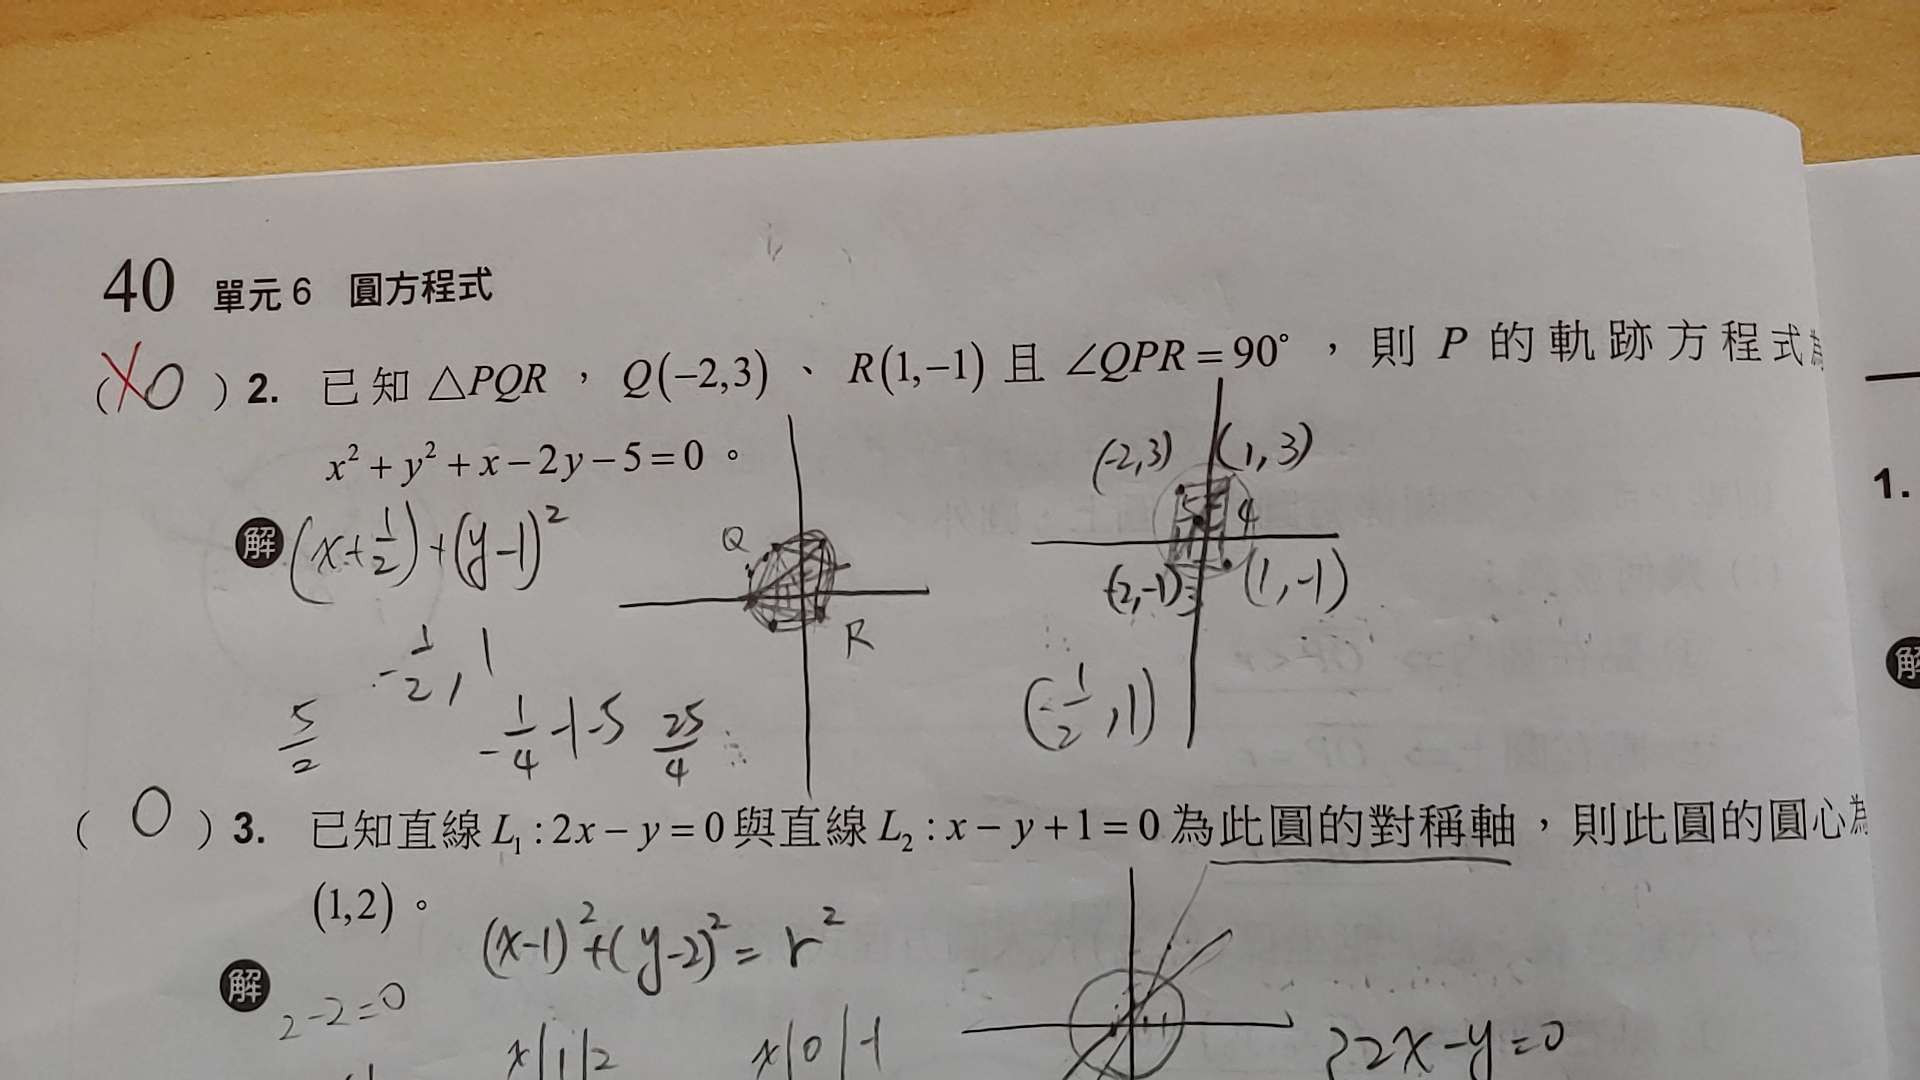 40 單元 6 圓方程式
( X O ) 2. 已知 △PQR , Q(−2,3) 、 R(1,−1) 且 ∠QPR = 90° , 則 P 的軌跡方程式為
x² + y² + x − 2y − 5 = 0 。
(-2,3) (1,3)
解 (x+1/2)+(y-1)²
Q
5 4
(2,-1) 3 (1,-1)
R
-1/2, 1
(-1/2, 1)
5/2 -1/4-1-5 25/4
( O ) 3. 已知直線 L₁ : 2x − y = 0 與直線 L₂ : x − y + 1 = 0 為此圓的對稱軸 , 則此圓的圓心為
(1,2) 。
(x-1)²+(y-2)²=r²
解
2-2=0
x|1|2 x|0|-1 2x-y=0
1.
解